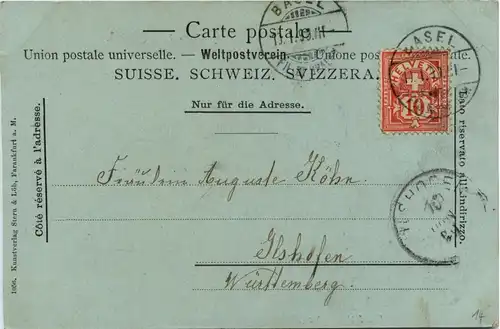 Carte postale.
Union postale universelle. — Weltpostverein. — Unione postale
SUISSE. SCHWEIZ. SVIZZERA.
Nur für die Adresse.
Côté réservé à l'adresse.
Lato riservato all'indirizzo.
BASEL
BASEL
HELVETIA
10
Fräulein Auguste Kühn.
Ilshofen
Württemberg.
1896. Kunstverlag Stern & Löb, Frankfurt a. M.
14